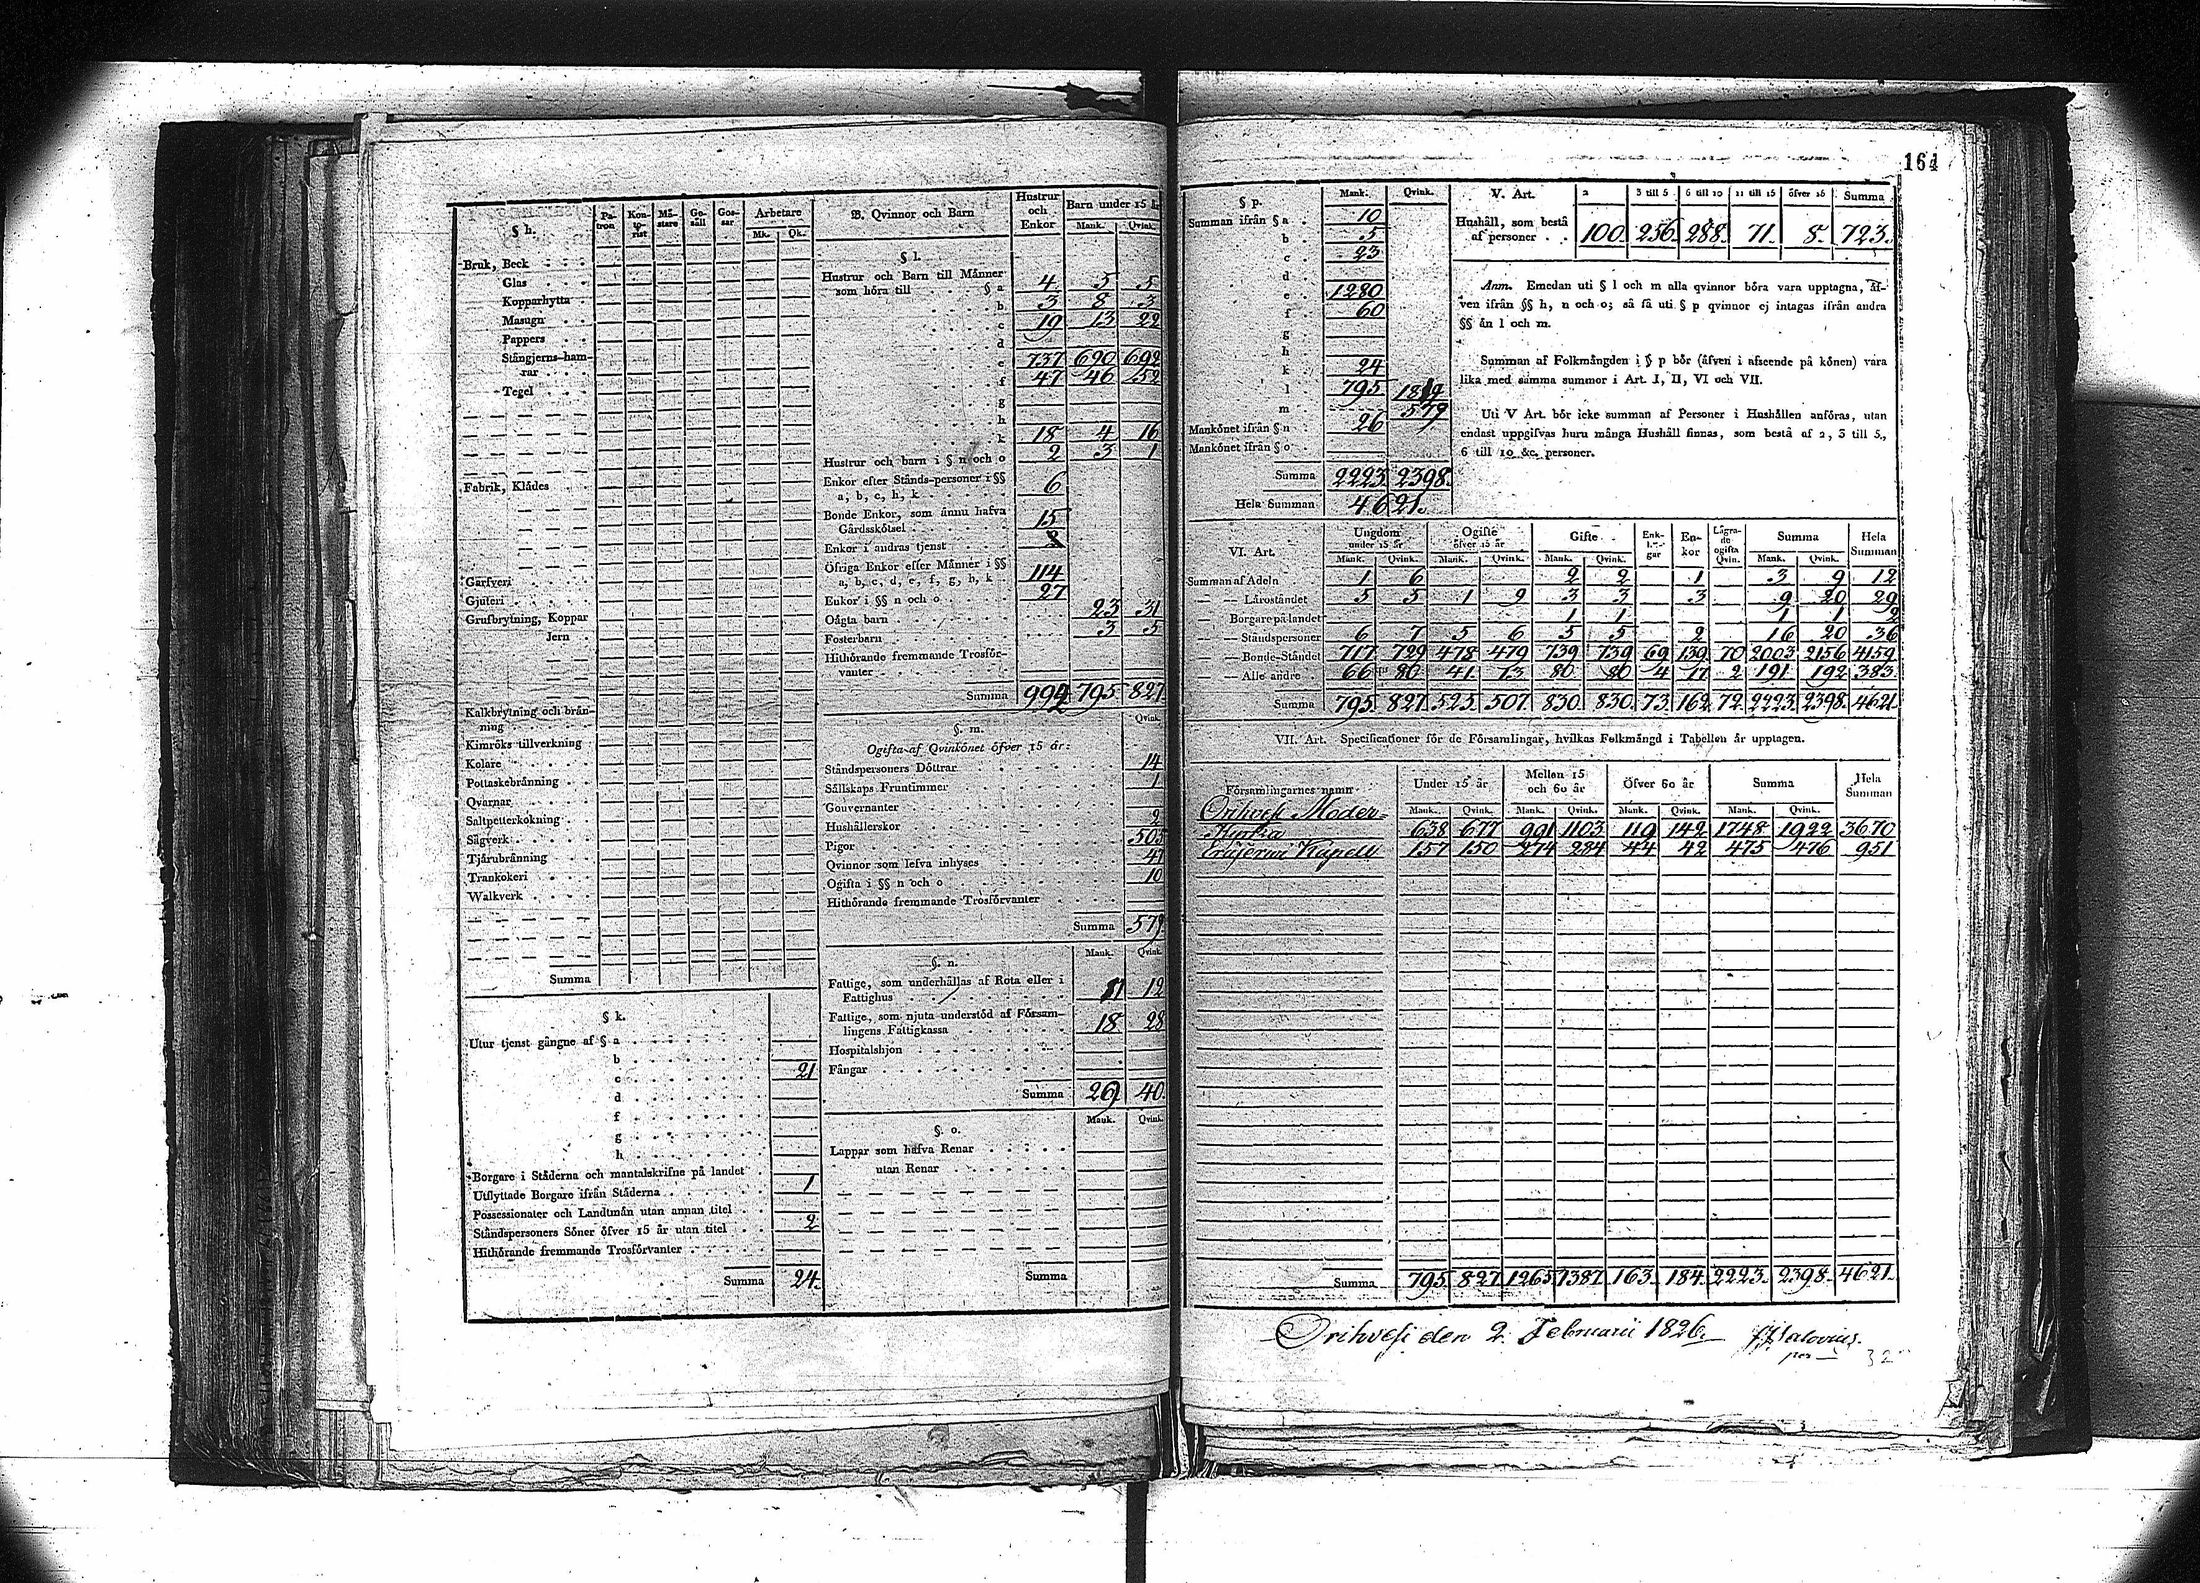 164
§ h.
Patron
Kontorist
Mästare
Gesäll
Gossar
Arbetare
Mk. Qk.
Bruk, Beck
Glas
Kopparhytta
Masugn
Pappers
Stångjerns-ham-
rar
Tegel
Fabrik, Klädes
Garfveri
Gjuteri
Grufbrytning, Koppar
Jern
Kalkbrytning och brän-
ning
Kimröks tillverkning
Kolare
Pottaskebränning
Qvarnar
Saltpetterkokning
Sågverk
Tjärubränning
Trankokeri
Walkverk
Summa
§ k.
Utur tjenst gångne af § a
b
c 21
d
f
g
h
Borgare i Städerna och mantalskrifne på landet 1
Utflyttade Borgare ifrån Städerna
Possessionater och Landtmän utan annan titel
Ståndspersoners Söner öfver 15 år utan titel 2
Hithörande fremmande Trosförvanter
Summa 24.
B. Qvinnor och Barn
Hustrur och Enkor
Barn under 15 år
Mank. Qvink.
§ l.
Hustrur och Barn till Männer
som höra till § a 4 5 5
b 3 8 3
c 19 13 22
d
e 737 690 692
f 47 46 52
g
h
k 18 4 16
Hustrur och barn i § n och o 2 3 1
Enkor efter Stånds-personer i §§
a, b, c, h, k 6
Bonde Enkor, som ännu hafva
Gårdsskötsel 15
Enkor i andras tjenst
Öfriga Enkor efter Männer i §§
a, b, c, d, e, f, g, h, k 114
Enkor i §§ n och o 27
Oägta barn 23 31
Fosterbarn 3 5
Hithörande fremmande Trosför-
vanter
Summa 992 795 827
§. m.
Qvink.
Ogifta af Qvinkönet öfver 15 år:
Ståndspersoners Döttrar 14
Sällskaps Fruntimmer 1
Gouvernanter
Hushällerskor 2
Pigor 505
Qvinnor som lefva inhyses 47
Ogifta i §§ n och o 10
Hithörande fremmande Trosförvanter
Summa 579
§. n.
Mank. Qvink.
Fattige, som underhållas af Rota eller i
Fattighus 11 12
Fattige, som njuta understöd af Försam-
lingens Fattigkassa 18 28
Hospitalshjon
Fångar
Summa 29 40.
Mank. Qvink.
§. o.
Lappar som hafva Renar
utan Renar
Summa
§ p. Mank. Qvink.
Summan ifrån § a 10
b 5
c 23
d
e 1280
f 60
g
h
k 24
l 795 1819
m 579
Mankönet ifrån § n 26
Mankönet ifrån § o
Summa 2223 2398.
Hela Summan 4621.
V. Art. 2 3 till 5 6 till 10 11 till 15 öfver 16 Summa
Hushåll, som bestå
af personer 100. 256. 288. 71. 8. 723.
Anm. Emedan uti § l och m alla qvinnor böra vara upptagna, äf-
ven ifrån §§ h, n och o; så få uti § p qvinnor ej intagas ifrån andra
§§ än l och m.
Summan af Folkmängden i § p bör (äfven i afseende på könen) vara
lika med samma summor i Art. I, II, VI och VII.
Uti V Art. bör icke summan af Personer i Hushållen anföras, utan
endast uppgifvas huru många Hushåll finnas, som bestå af 2, 3 till 5,
6 till 10 &c. personer.
VI. Art.
Ungdom under 15 år
Ogifte öfver 15 år
Gifte
Enklingar
Enkor
Lägrade ogifta Qvin.
Summa
Hela Summan
Mank. Qvink. Mank. Qvink. Mank. Qvink. Mank. Qvink.
Summan af Adeln 1 6 2 2 1 3 9 12
Läroståndet 5 5 1 9 3 3 3 9 20 29
Borgare på landet 1 1 1 1 2
Ståndspersoner 6 7 5 6 5 5 2 16 20 36
Bonde-Ståndet 717 729 478 479 739 739 69 139 70 2003 2156 4159
Alle andre 66 80 41 13 80 80 4 17 2 191 192 383
Summa 795. 827. 525. 507 830. 830. 73. 162 72. 2223. 2398. 4621.
VII. Art. Specificationer för de Församlingar, hvilkas Folkmängd i Tabellen är upptagen.
Församlingarnes namn
Under 15 år
Mellan 15 och 60 år
Öfver 60 år
Summa
Hela Summan
Mank. Qvink. Mank. Qvink. Mank. Qvink. Mank. Qvink.
Orihvesi Moder-
Kyrka 638 677 991 1103 119 142 1748 1922 3670
Eräjerwi Kapell 157 150 274 284 44 42 475 476 951
Summa 795. 827 1265 1387. 163. 184. 2223. 2398. 4621.
Orihvesi den 2. Februarii 1826.